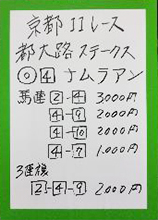 京都11レース
都大路ステークス
◎ 4 ナムラアン
馬蓮 2-4 3000円
4-9 2000円
4-10 2000円
4-7 1,000円
3連複
2-4-9 2,000円